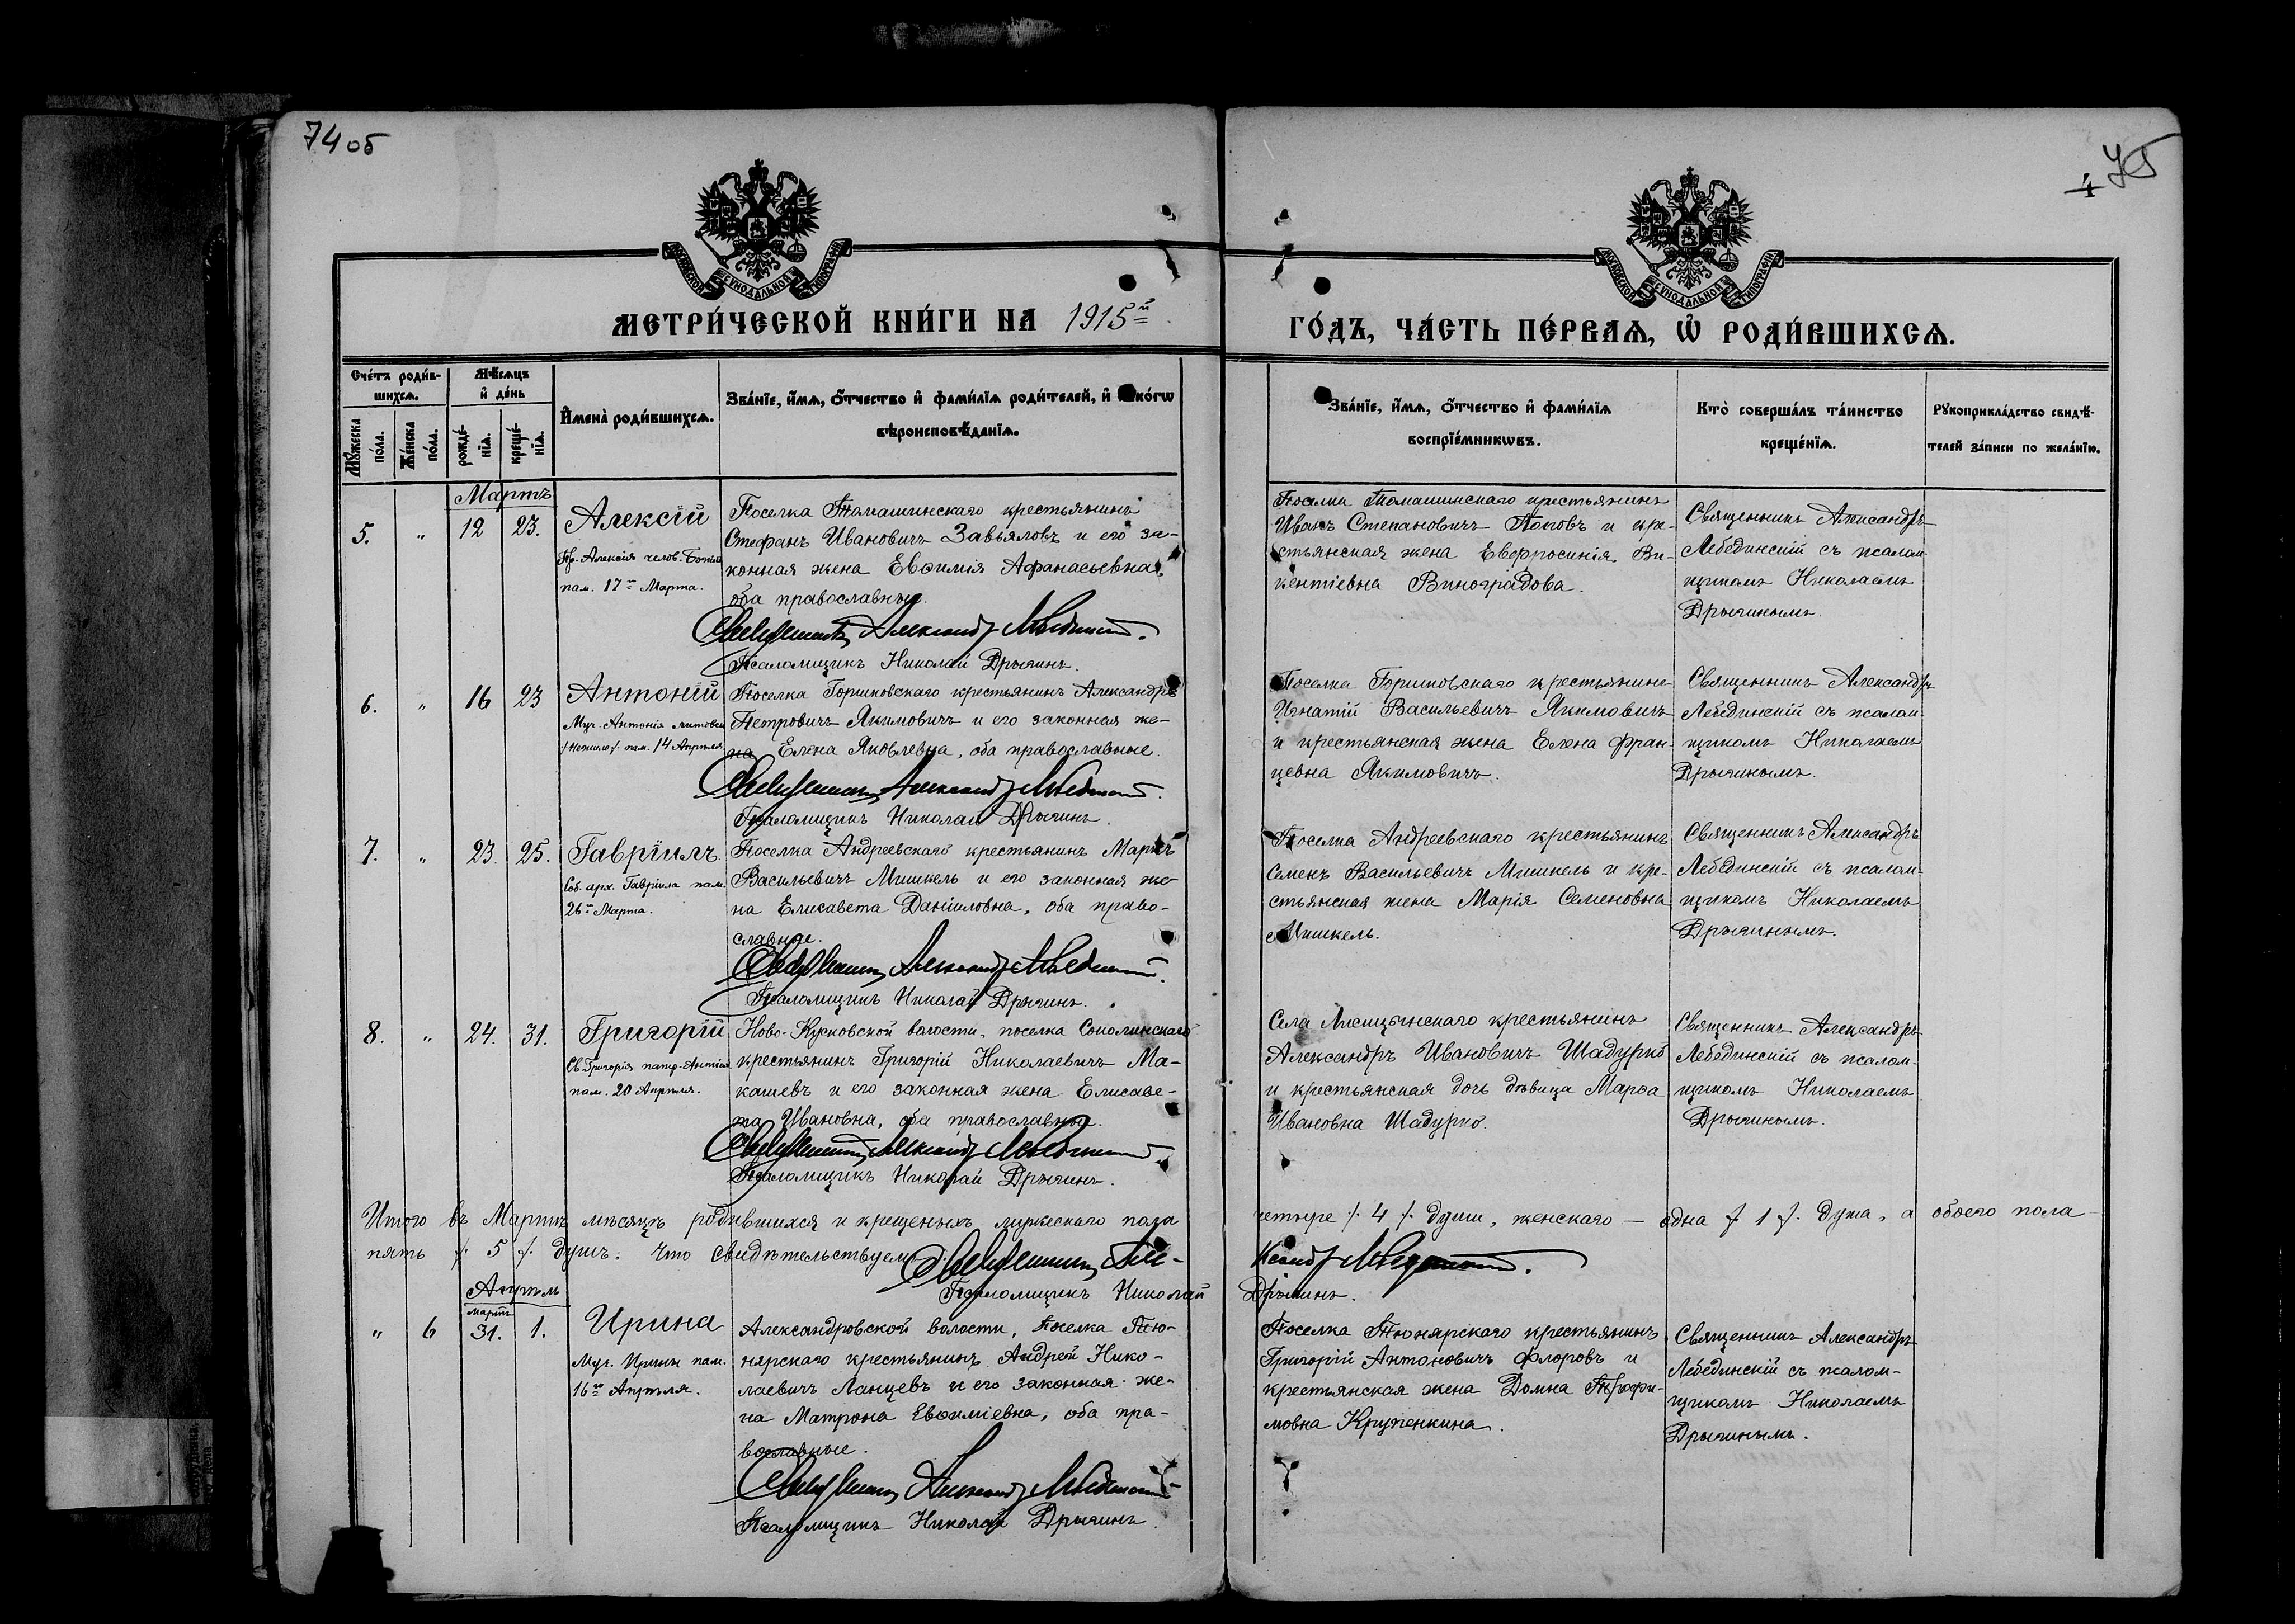 74 об
75
МОСКОВСКОЙ СѴНОДАЛЬНОЙ ТИПОГРАФІИ
МОСКОВСКОЙ СѴНОДАЛЬНОЙ ТИПОГРАФІИ
МЕТРИ́ЧЕСКОЙ КНИ́ГИ НА 1915й
ГО́ДЪ, ЧА́СТЬ ПЕ́РВАѦ, Ѽ РОДИ́ВШИХСѦ.
Сче́тъ роди́в-
шихсѧ.
Мꙋ́жеска по́ла.
Же́нска по́ла.
Мѣ́сѧцъ
и҆ де́нь
рожде́-
нїѧ.
креще́-
нїѧ.
И҆мена̀ роди́вшихсѧ.
Зва́нїе, и҆́мѧ, ѻ҆́тчество и҆ фами́лїѧ роди́телей, и҆ ко́гѡ
вѣроисповѣ́данїѧ.
Зва́нїе, и҆́мѧ, ѻ҆́тчество и҆ фами́лїѧ
воспрїе́мникѡвъ.
Кто̀ соверша́лъ та́инство
креще́нїѧ.
Рꙋкоприкла́дство свидѣ́-
телей за́писи по жела́нїю.
Мартъ
5. " 12 23. Алексій
Пр. Алексія челов. Божія
пам. 17го Марта.
Поселка Томашинскаго крестьянинъ
Стефанъ Ивановичъ Завьяловъ и его за-
конная жена Евѳимія Афанасьевна,
оба православные.
Священникъ Александръ Лебединскій.
Псаломщикъ Николай Дрыгинъ.
Поселка Томашинскаго крестьянинъ
Иванъ Степановичъ Поповъ и кре-
стьянская жена Евфросинія Ви-
кентіевна Виноградова.
Священникъ Александръ
Лебединскій съ псалом-
щикомъ Николаемъ
Дрыгинымъ.
6. " 16 23 Антоній
Муч. Антонія литовск.
пам. 14 Апрѣля
Поселка Горшковскаго крестьянинъ Александръ
Петровичъ Якимовичъ и его законная же-
на Елена Яковлевна, оба православные.
Священникъ Александръ Лебединскій.
Псаломщикъ Николай Дрыгинъ.
Поселка Горшковскаго крестьянинъ
Игнатій Васильевичъ Якимовичъ
и крестьянская жена Елена Фран-
цевна Якимовичъ.
Священникъ Александръ
Лебединскій съ псалом-
щикомъ Николаемъ
Дрыгинымъ.
7. " 23. 25. Гавріилъ
Соб. арх. Гавріила пам.
26го Марта.
Поселка Андреевскаго крестьянинъ Маркъ
Васильевичъ Мишкель и его законная же-
на Елисавета Даніиловна, оба право-
славные.
Священникъ Александръ Лебединскій.
Псаломщикъ Николай Дрыгинъ.
Поселка Андреевскаго крестьянинъ
Семенъ Васильевичъ Мишкель и кре-
стьянская жена Марія Семеновна
Мишкель.
Священникъ Александръ
Лебединскій съ псалом-
щикомъ Николаемъ
Дрыгинымъ.
8. " 24. 31. Григорій
Св. Григорія патр. Антіох.
пам. 20 Апрѣля.
Ново-Кусковской волости, поселка Соколинскаго
крестьянинъ Григорій Николаевичъ Ма-
кашевъ и его законная жена Елисаве-
та Ивановна, оба православные.
Священникъ Александръ Лебединскій
Псаломщикъ Николай Дрыгинъ.
Села Лисицынскаго крестьянинъ
Александръ Ивановичъ Шадурко
и крестьянская дочь дѣвица Марѳа
Ивановна Шадурко.
Священникъ Александръ
Лебединскій съ псалом-
щикомъ Николаемъ
Дрыгинымъ.
Итого въ Мартѣ мѣсяцѣ родившихся и крещеныхъ мужескаго пола четыре /. 4 /. души, женскаго — одна /. 1 /. душа, а обоего пола —
пять /. 5 /. душъ. Что свидѣтельствуемъ: Священникъ Александръ Лебединскій.
Псаломщикъ Николай Дрыгинъ.
Апрѣль
мартъ
" 6 31. 1. Ирина
Муч. Ирины пам.
16го Апрѣля.
Александровской волости, поселка Тю-
нярскаго крестьянинъ Андрей Нико-
лаевичъ Ланцевъ и его законная же-
на Матрона Евѳиміевна, оба пра-
вославные.
Священникъ Александръ Лебединскій
Псаломщикъ Николай Дрыгинъ
Поселка Тюнярскаго крестьянинъ
Григорій Антоновичъ Флоровъ и
крестьянская жена Домна Трофи-
мовна Крупенкина.
Священникъ Александръ
Лебединскій съ псалом-
щикомъ Николаемъ
Дрыгинымъ.